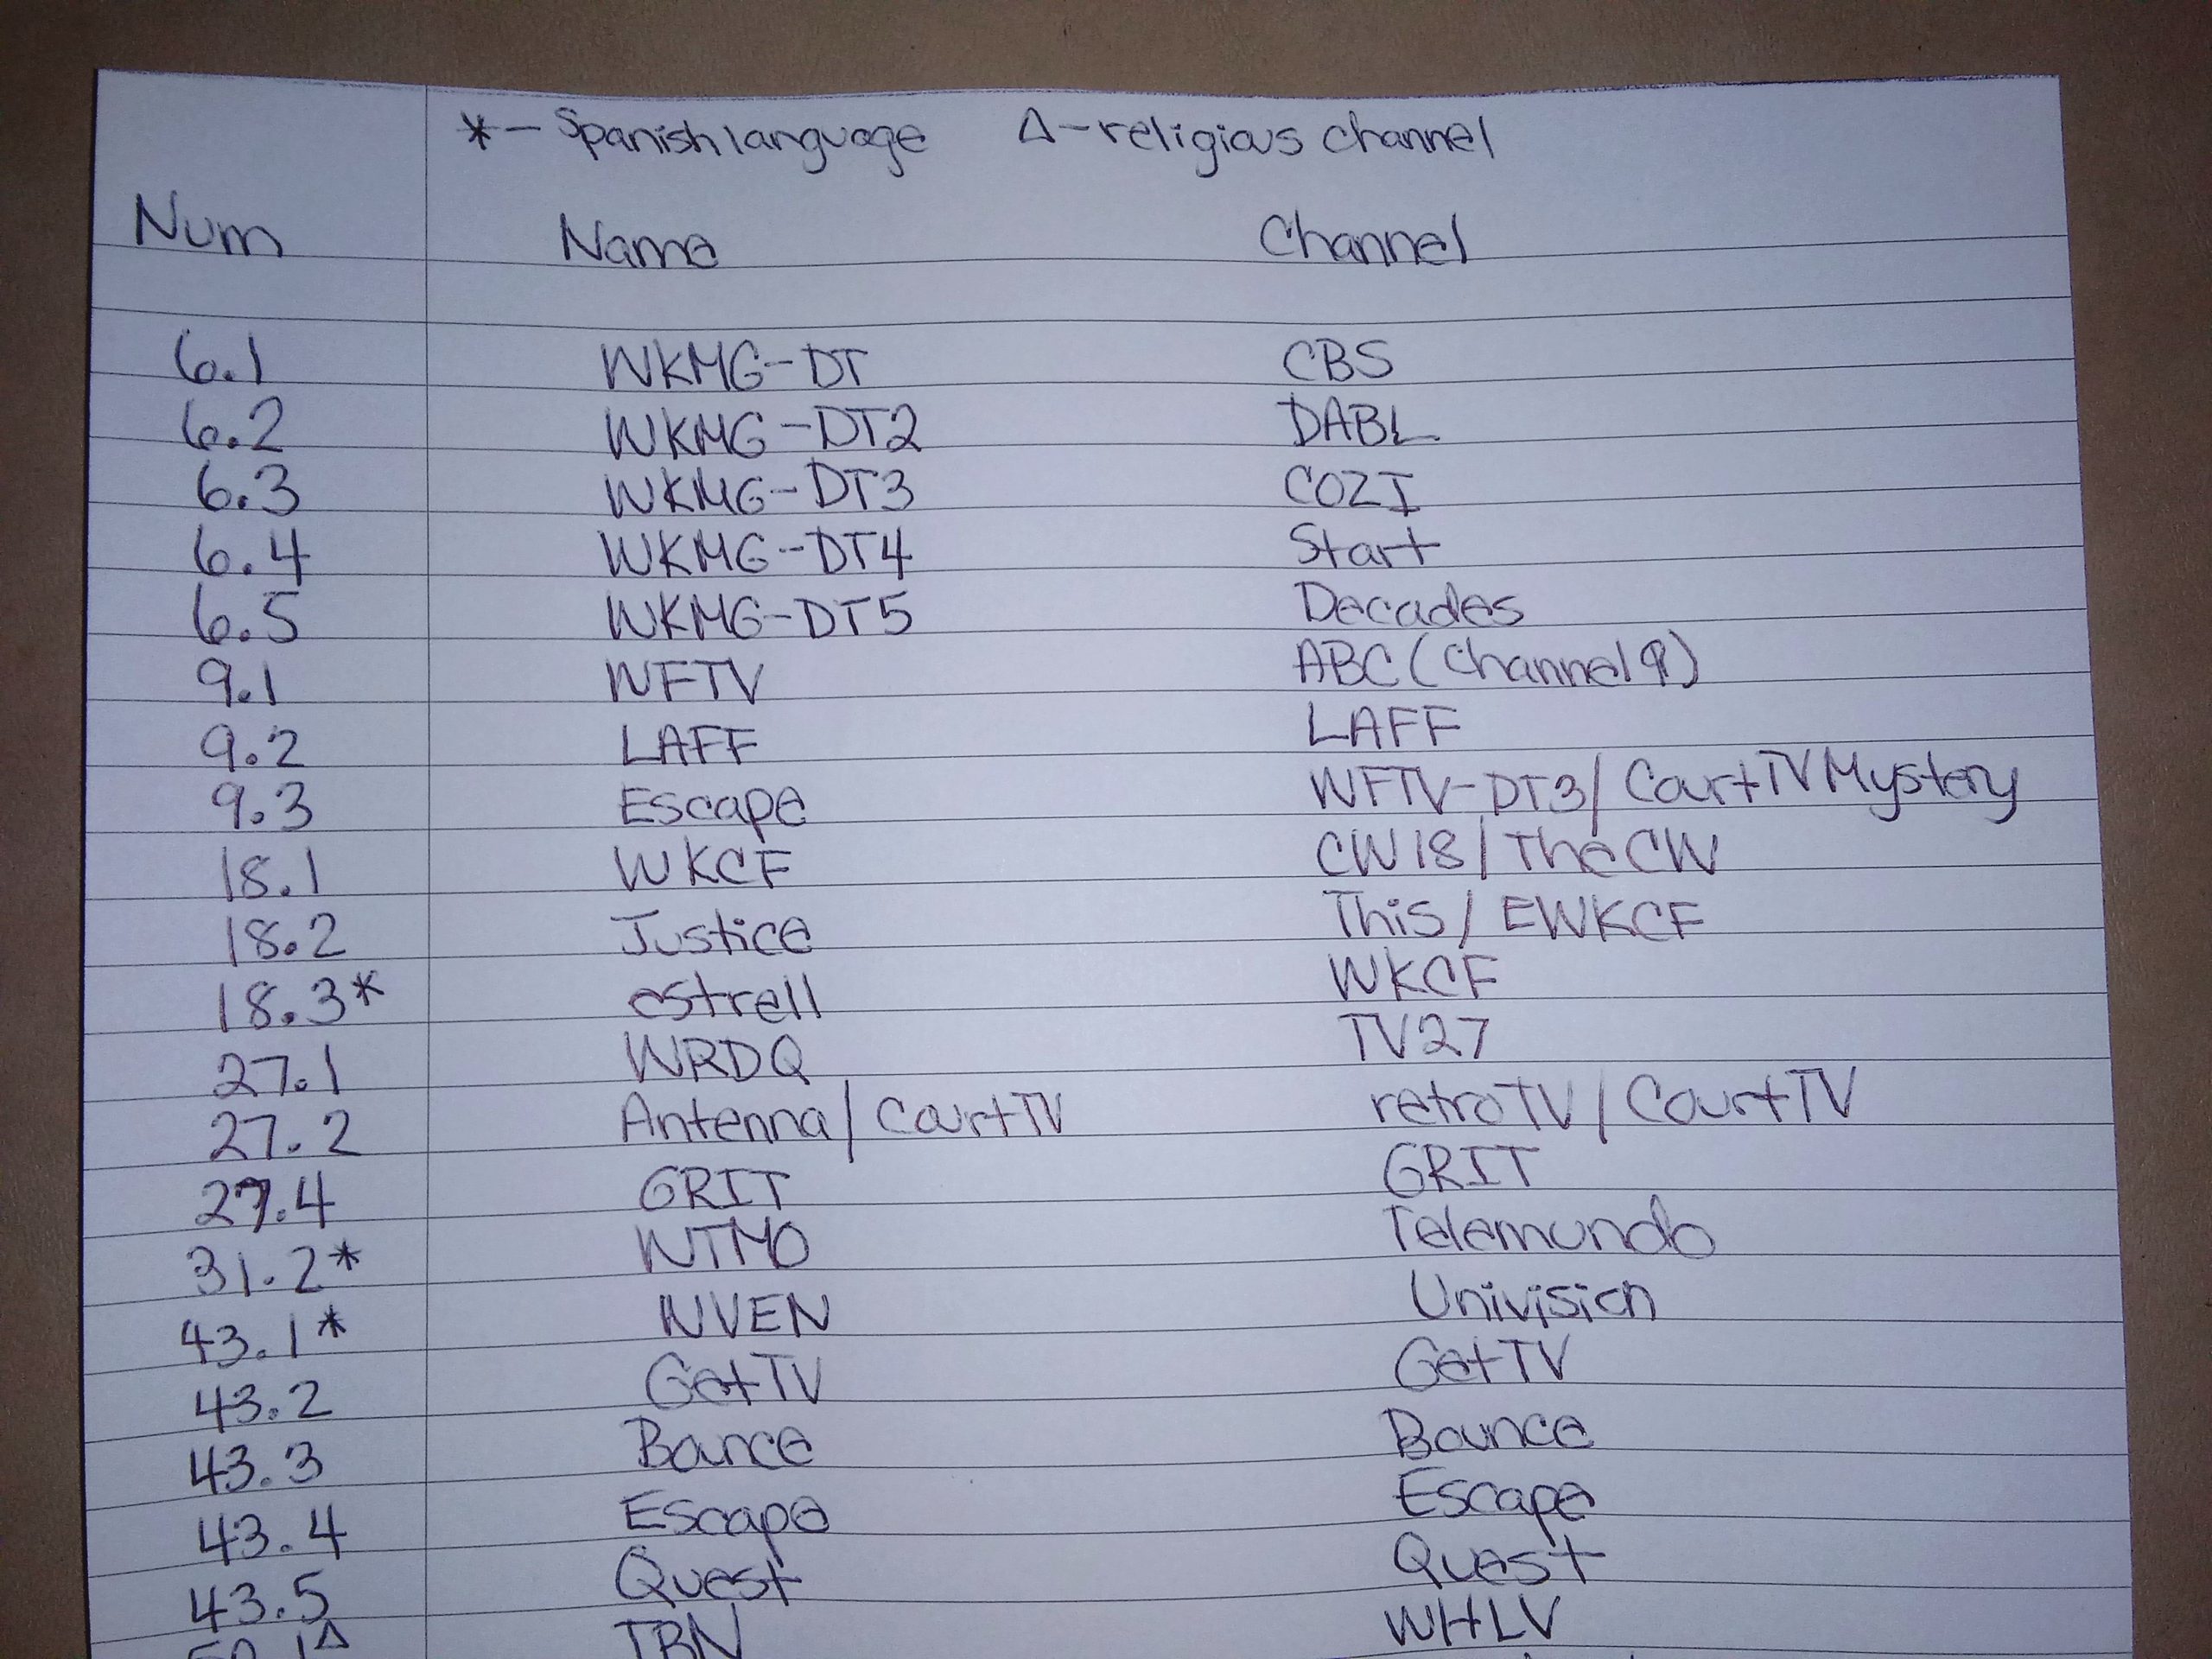 *- Spanish language Δ-religious channel
Num Name Channel
6.1 WKMG-DT CBS
6.2 WKMG-DT2 DABL
6.3 WKMG-DT3 COZI
6.4 WKMG-DT4 Start
6.5 WKMG-DT5 Decades
9.1 WFTV ABC (Channel 9)
9.2 LAFF LAFF
9.3 Escape WFTV-DT3/ CourtTV Mystery
18.1 WKCF CW18/The CW
18.2 Justice This/ EWKCF
18.3* estrell WKCF
27.1 WRDQ TV27
27.2 Antenna/ CourtTV retroTV/ CourtTV
27.4 GRIT GRIT
31.2* WTMO Telemundo
43.1* WVEN Univision
43.2 GetTV GetTV
43.3 Bounce Bounce
43.4 Escape Escape
43.5 Quest Quest
TBN WHLV